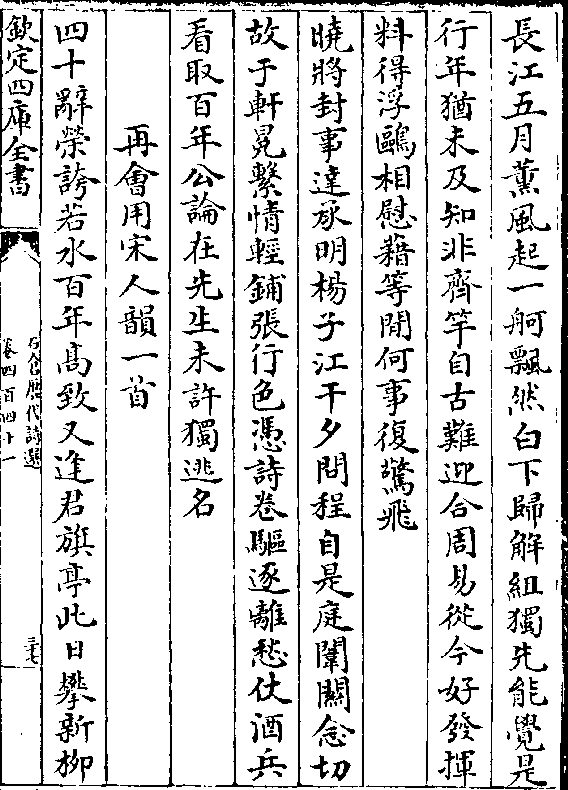 長江五月薰風起一舸飄然白下歸解組獨先能覺是
行年猶未及知非齊竽自古難迎合周易從今好發揮
料得浮鷗相慰藉等閒何事復驚飛
曉將封事達承明楊子江干夕問程自是庭闈關念切
故于軒冕繫情輕鋪張行色憑詩卷驅逐離愁仗酒兵
看取百年公論在先生未許獨逃名
再會用宋人韻一首
四十辭榮誇若水百年高致又逢君旗亭此日攀新柳
欽定四庫全書
石倉歴代詩選
卷四百四十一
三十七